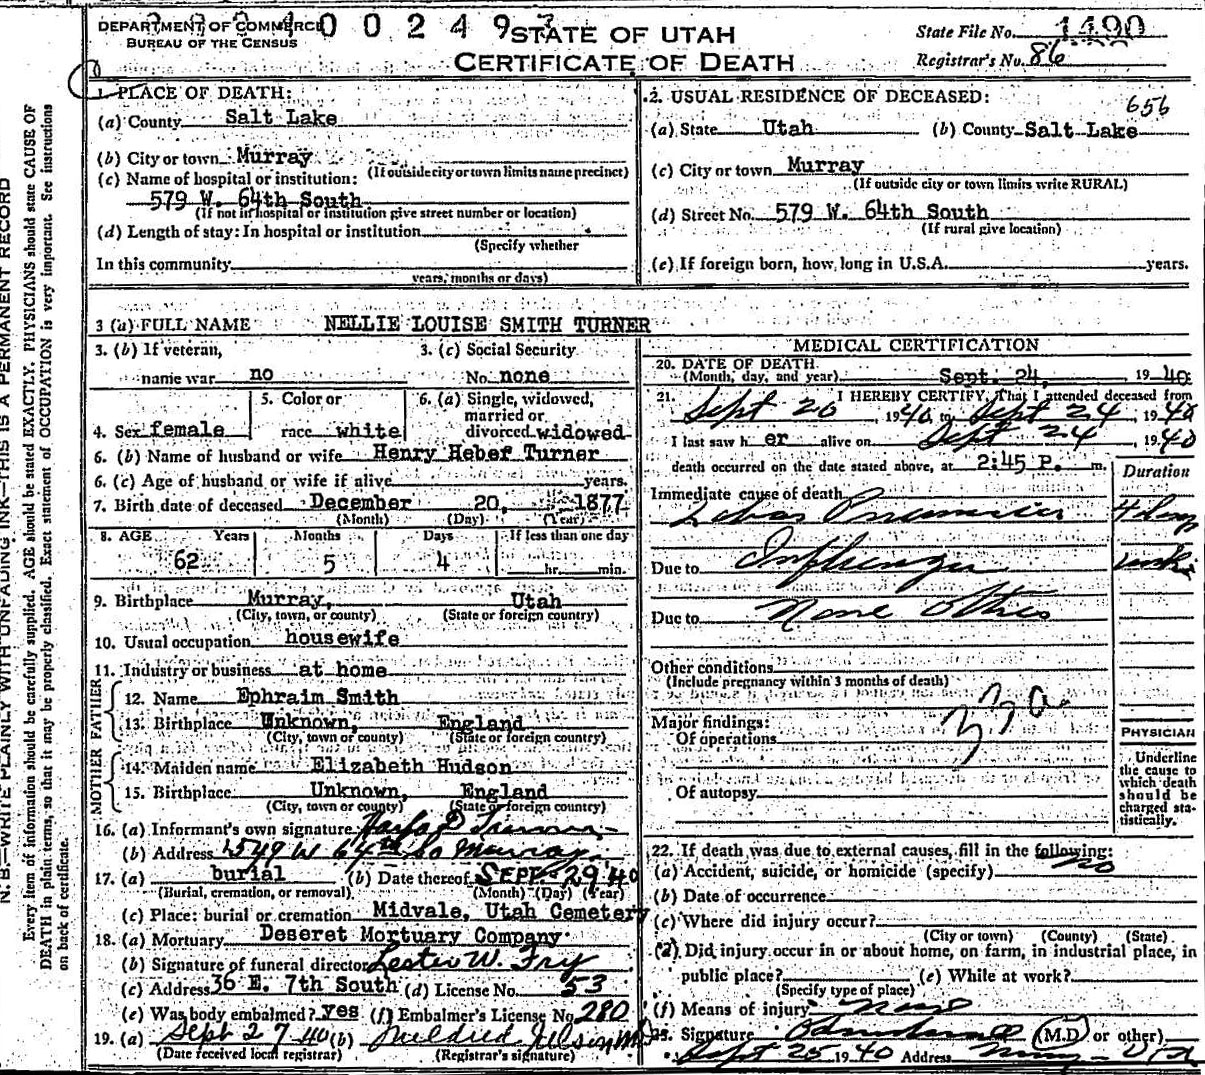 DEPARTMENT OF COMMERCE
BUREAU OF THE CENSUS
0 0 2 4 9
STATE OF UTAH
CERTIFICATE OF DEATH
State File No. 1490
Registrar's No. 86
N. B.—WRITE PLAINLY WITH UNFADING INK—THIS IS A PERMANENT RECORD
Every item of information should be carefully supplied. AGE should be stated EXACTLY. PHYSICIANS should state CAUSE OF
DEATH in plain terms, so that it may be properly classified. Exact statement of OCCUPATION is very important. See instructions
on back of certificate.
1. PLACE OF DEATH:
(a) County Salt Lake
(b) City or town Murray
(If outside city or town limits name precinct)
(c) Name of hospital or institution:
579 W. 64th South
(If not in hospital or institution give street number or location)
(d) Length of stay: In hospital or institution
(Specify whether
In this community
years, months or days)
2. USUAL RESIDENCE OF DECEASED:
656
(a) State Utah (b) County Salt Lake
(c) City or town Murray
(If outside city or town limits write RURAL)
(d) Street No. 579 W. 64th South
(If rural give location)
(e) If foreign born, how long in U.S.A. years.
3 (a) FULL NAME NELLIE LOUISE SMITH TURNER
3. (b) If veteran, 3. (c) Social Security
name war no No. none
5. Color or 6. (a) Single, widowed,
married or
4. Sex female race white divorced widowed
6. (b) Name of husband or wife Henry Heber Turner
6. (c) Age of husband or wife if alive years.
7. Birth date of deceased December 20, 1877
(Month) (Day) (Year)
8. AGE Years Months Days If less than one day
62 5 4 hr. min.
9. Birthplace Murray, Utah
(City, town, or county) (State or foreign country)
10. Usual occupation housewife
11. Industry or business at home
FATHER
12. Name Ephraim Smith
13. Birthplace Unknown, England
(City, town or county) (State or foreign country)
MOTHER
14. Maiden name Elizabeth Hudson
15. Birthplace Unknown, England
(City, town or county) (State or foreign country)
16. (a) Informant's own signature
(b) Address 579 W 64th So Murray
17. (a) burial (b) Date thereof SEPT-29 40
(Burial, cremation, or removal) (Month) (Day) (Year)
(c) Place: burial or cremation Midvale, Utah Cemetery
18. (a) Mortuary Deseret Mortuary Company
(b) Signature of funeral director Lester W. Fry
(c) Address 36 E. 7th South (d) License No. 53
(e) Was body embalmed? yes (f) Embalmer's License No 280
19. (a) Sept 27 40 (b) Mildred
(Date received local registrar) (Registrar's signature)
MEDICAL CERTIFICATION
20. DATE OF DEATH
(Month, day, and year) Sept. 24, 19 40
21. I HEREBY CERTIFY, That I attended deceased from
Sept 20 1940 to Sept 24, 1940
I last saw her alive on Sept 24, 1940
death occurred on the date stated above, at 2:45 P. m.
Duration
Immediate cause of death
Lobar Pneumonia 4 days
Due to Influenza
Due to None Other
Other conditions
(Include pregnancy within 3 months of death)
Major findings:
Of operations
Of autopsy
PHYSICIAN
Underline
the cause to
which death
should be
charged sta-
tistically.
22. If death was due to external causes, fill in the following:
(a) Accident, suicide, or homicide (specify) no
(b) Date of occurrence
(c) Where did injury occur?
(City or town) (County) (State)
(d) Did injury occur in or about home, on farm, in industrial place, in
public place? (e) While at work?
(Specify type of place)
(f) Means of injury
23. Signature (M.D. or other)
Sept 25 1940 Address Murray - Utah